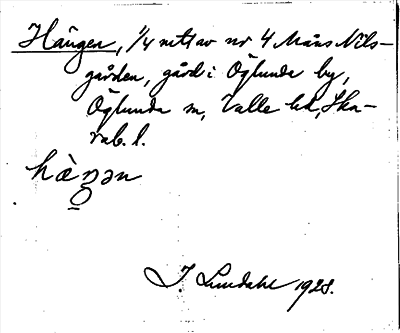 Haugen, 1/4 mtl av nr 4 Måns Nils-
gården, gård i Öglunda by,
Öglunda sn, Valle hd, Ska-
rab. l.
hàgən
J. Lundahl 1928.